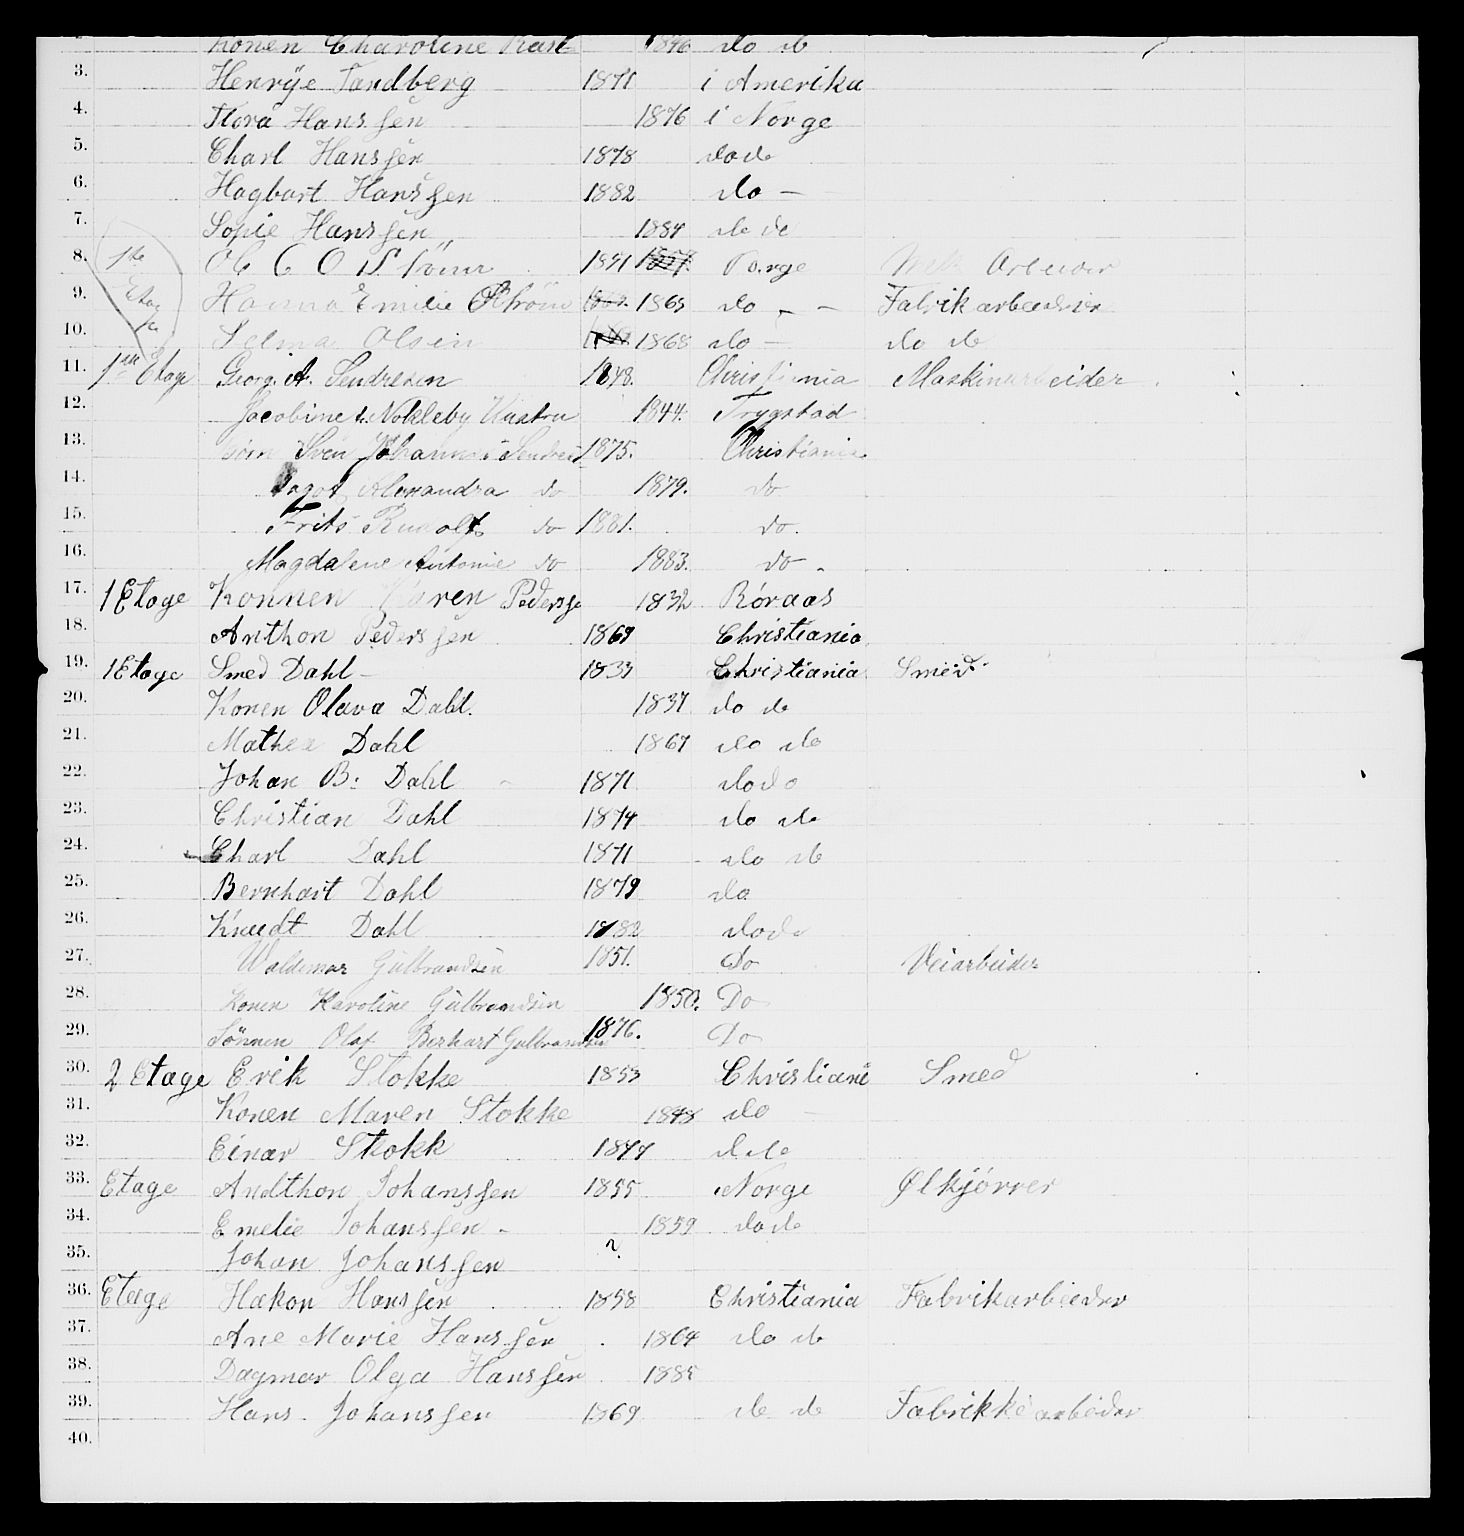 Konen Charoline 1846 do do
3. Henrye Tandberg 1871 i Amerika
4. Flora Hanssen 1876 i Norge
5. Charl Hanssen 1878 do do
6. Hagbart Hanssen 1882 do —
7. Sopie Hanssen 1884 do do
8. 1ste O 1841 Norge Arbeider
9. Etag Hanna Emilie Ström 1865 do - — Fabrikarbeider
10. Selma Olsen 1868 do — do do
11. 1ste Etage Georg A. Sendresen 1848. Christiania Maskinarbeider
12. Jacobine f. Nokleby Hustru 1844. Trygstad
13. Sven Johannes 1875. Christiania
14. Alexandra do 1879. do
15. Frits Rudolf do 1881. do.
16. Magdalene Antonie do 1883. do -
17. 1 Etage Konnen Karen Pederss 1832 Röraas
18. Anthon Pederssen 1869 Christiania
19. 1 Etage Smed Dahl — 1833 Christiania Smed.
20. Konen Olava Dahl. 1837 do do
21. Mathea Dahl 1867 do do
22. Johan B: Dahl 1871 do do
23. Christian Dahl 1874 do do
24. Charl Dahl 1871 do do
25. Bernhart Dahl 1879 do
26. Knudt Dahl 1882 do do
27. Waldemar Gulbrandsen 1851. Do Veiarbeider
28. Konen Karoline Gulbrandsen 1850. Do
29. Sönnen Olaf Berhart Gulbrandsen 1876. Do
30. 2 Etage Erik Stokke 1853 Christiani Smed
31. Konen Maren Stokke 1848 do —
32. Einar Stokk 1877 do do
33. Etage Andthon Johanssen 1855 Norge Ølkjörrer
34. Emelie Johanssen - 1859 do do
35. Johan Johanssen ?
36. Etage Hakon Hanssen 1858 Christiania Fabrikarbieder
37. Ane Marie Hanssen 1864 do do
38. Dagmar Olga Hanssen 1885
39. Hans. Johanssen 1869 do do Fabrikkearbeder
40.